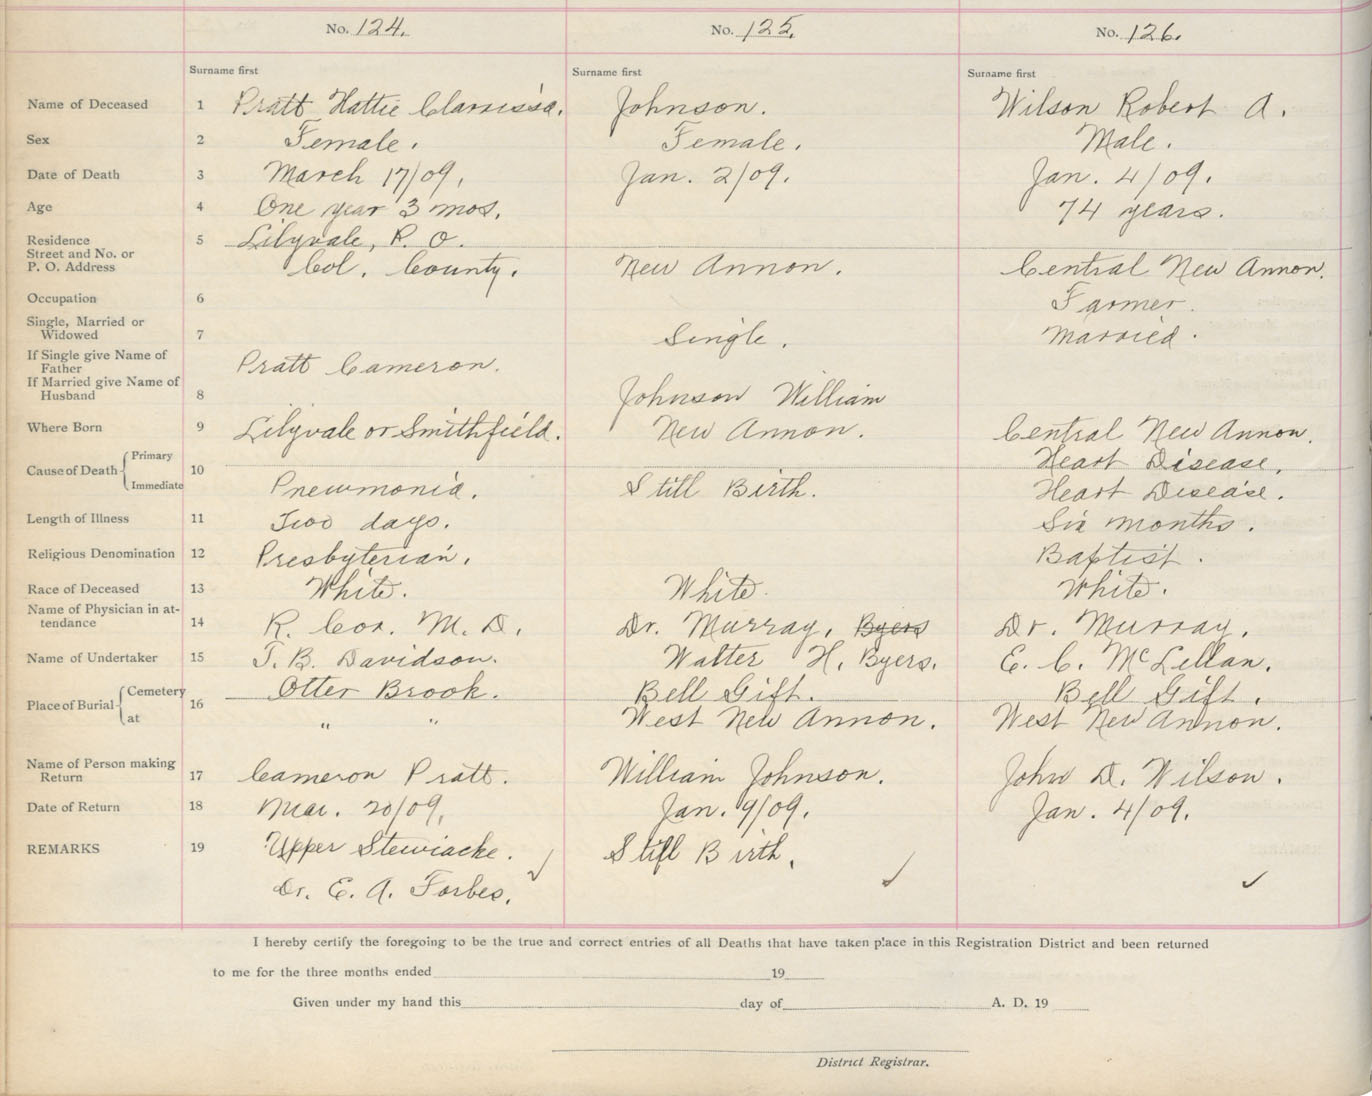 No. 124. No. 125. No. 126.
Surname first Surname first Surname first
Name of Deceased 1 Pratt Hattie Clarissa. Johnson. Wilson Robert A.
Sex 2 Female. Female. Male.
Date of Death 3 March 17/09. Jan. 2/09. Jan. 4/09.
Age 4 One year 3 mos. 74 years.
Residence 5 Lilyvale, P. O.
Street and No. or
P. O. Address Col. County. New Annon. Central New Annon.
Occupation 6 Farmer.
Single, Married or
Widowed 7 Single. Married.
If Single give Name of
Father Pratt Cameron.
If Married give Name of
Husband 8 Johnson William
Where Born 9 Lilyvale or Smithfield. New Annon. Central New Annon.
Cause of Death Primary 10 Heart Disease.
Immediate Pneumonia. Still Birth. Heart Disease.
Length of Illness 11 Two days. Six months.
Religious Denomination 12 Presbyterian. Baptist.
Race of Deceased 13 White. White. White.
Name of Physician in at-
tendance 14 R. Cox. M. D. Dr. Murray. Byers Dr. Murray.
Name of Undertaker 15 T. B. Davidson. Walter H. Byers. E. C. McLellan.
Place of Burial Cemetery 16 Otter Brook. Bell Gift. Bell Gift.
at " " West New Annon. West New Annon.
Name of Person making
Return 17 Cameron Pratt. William Johnson. John D. Wilson.
Date of Return 18 Mar. 20/09. Jan. 9/09. Jan. 4/09.
REMARKS 19 Upper Stewiacke. Still Birth.
Dr. E. A. Forbes.
I hereby certify the foregoing to be the true and correct entries of all Deaths that have taken place in this Registration District and been returned
to me for the three months ended 19
Given under my hand this day of A. D. 19
District Registrar.